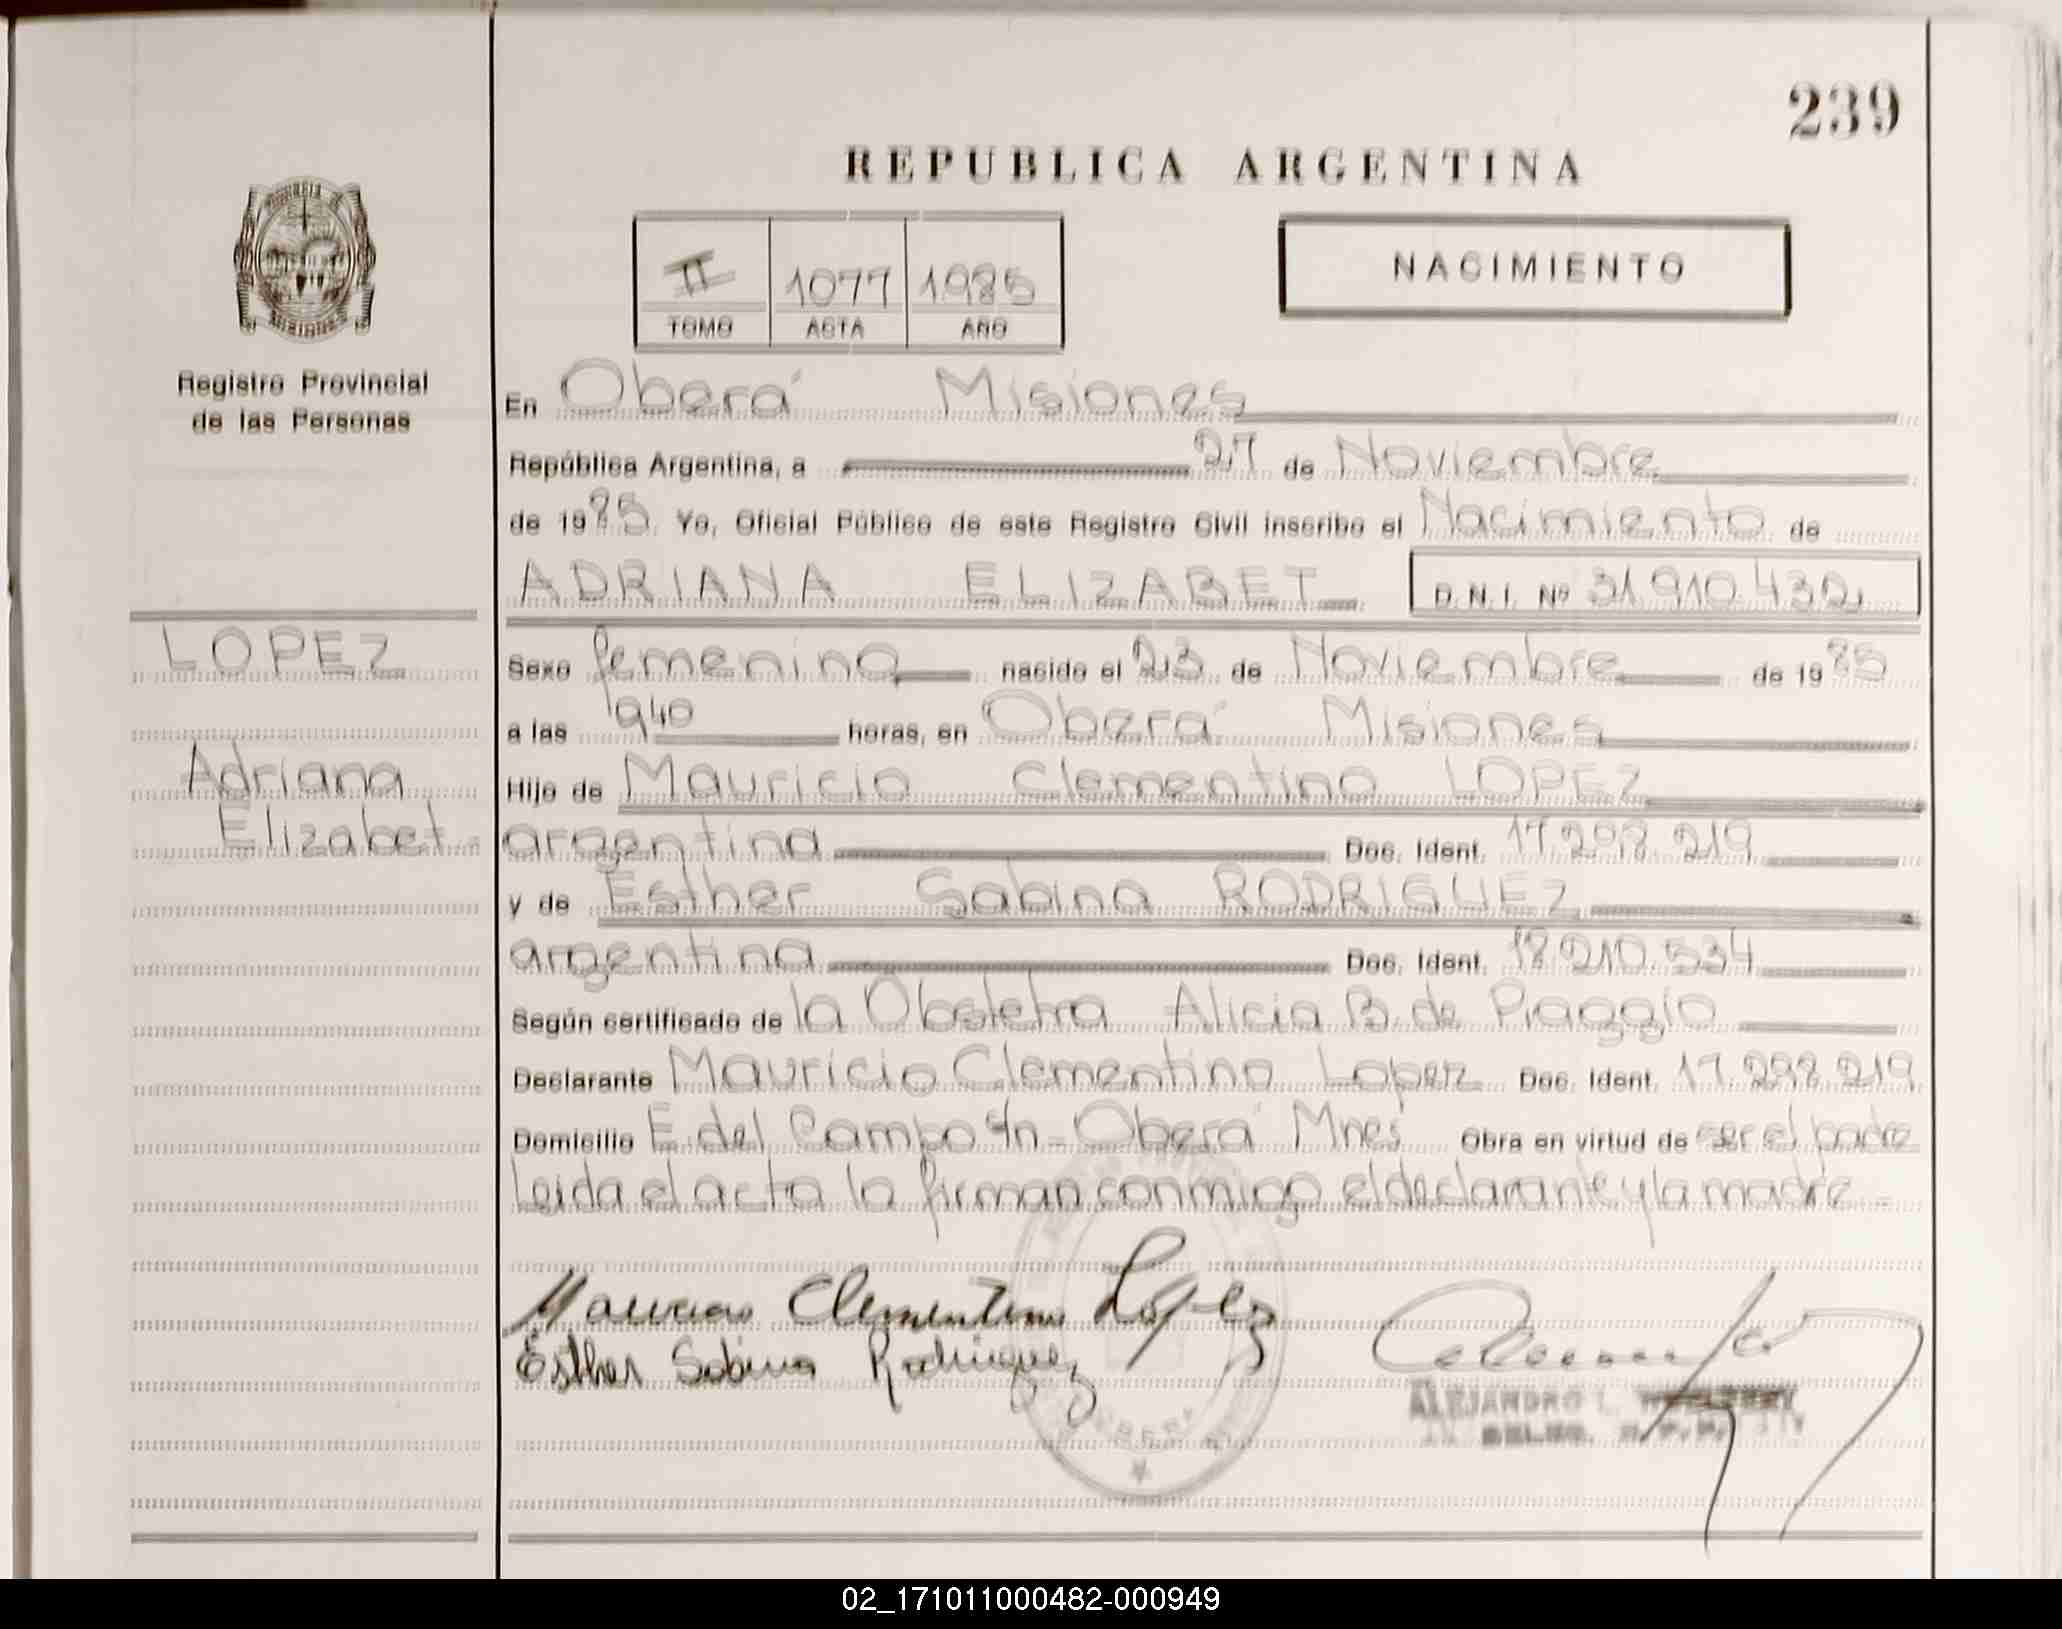 239
REPUBLICA ARGENTINA
NACIMIENTO
II 1077 1985
TOMO ACTA AÑO
Registro Provincial
de las Personas
LOPEZ
Adriana
Elizabet
En Oberá Misiones
República Argentina, a 27 de Noviembre
de 1985 Yo, Oficial Público de este Registro Civil inscribo el Nacimiento de
ADRIANA ELIZABET D.N.I. Nº 31.910.432
Sexo femenino nacido el 23 de Noviembre de 1985
a las 1940 horas, en Oberá Misiones
Hijo de Mauricio Clementino LOPEZ
argentina Doc. Ident. 17.298.219
y de Esther Sabina RODRIGUEZ
argentina Doc. Ident. 18.210.534
Según certificado de la Obstetra Alicia B. de Piaggio
Declarante Mauricio Clementino Lopez Doc. Ident. 17.298.219
Domicilio E. del Campo S/n - Oberá Mnes Obra en virtud de ser el padre
Leida el acta la firman conmigo el declarante y la madre -
Mauricio Clementino López
Esther Sabina Rodriguez
ALEJANDRO L.
DELEG. R.P.P.
02_171011000482-000949